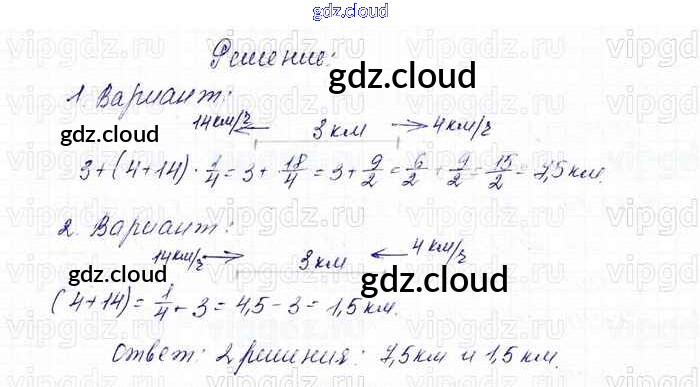 gdz.cloud
Решение:
gdz.cloud
1. Вариант:
gdz.cloud
14 км/ч 3 км 4 км/ч
3+(4+14)·1/4=3+18/4=3+9/2=6/2+9/2=15/2=7,5 км.
2. Вариант:
14 км/ч 3 км 4 км/ч
gdz.cloud
gdz.cloud
(4+14)=1/4-3=4,5-3=1,5 км.
Ответ: 2 решения: 7,5 км и 1,5 км.